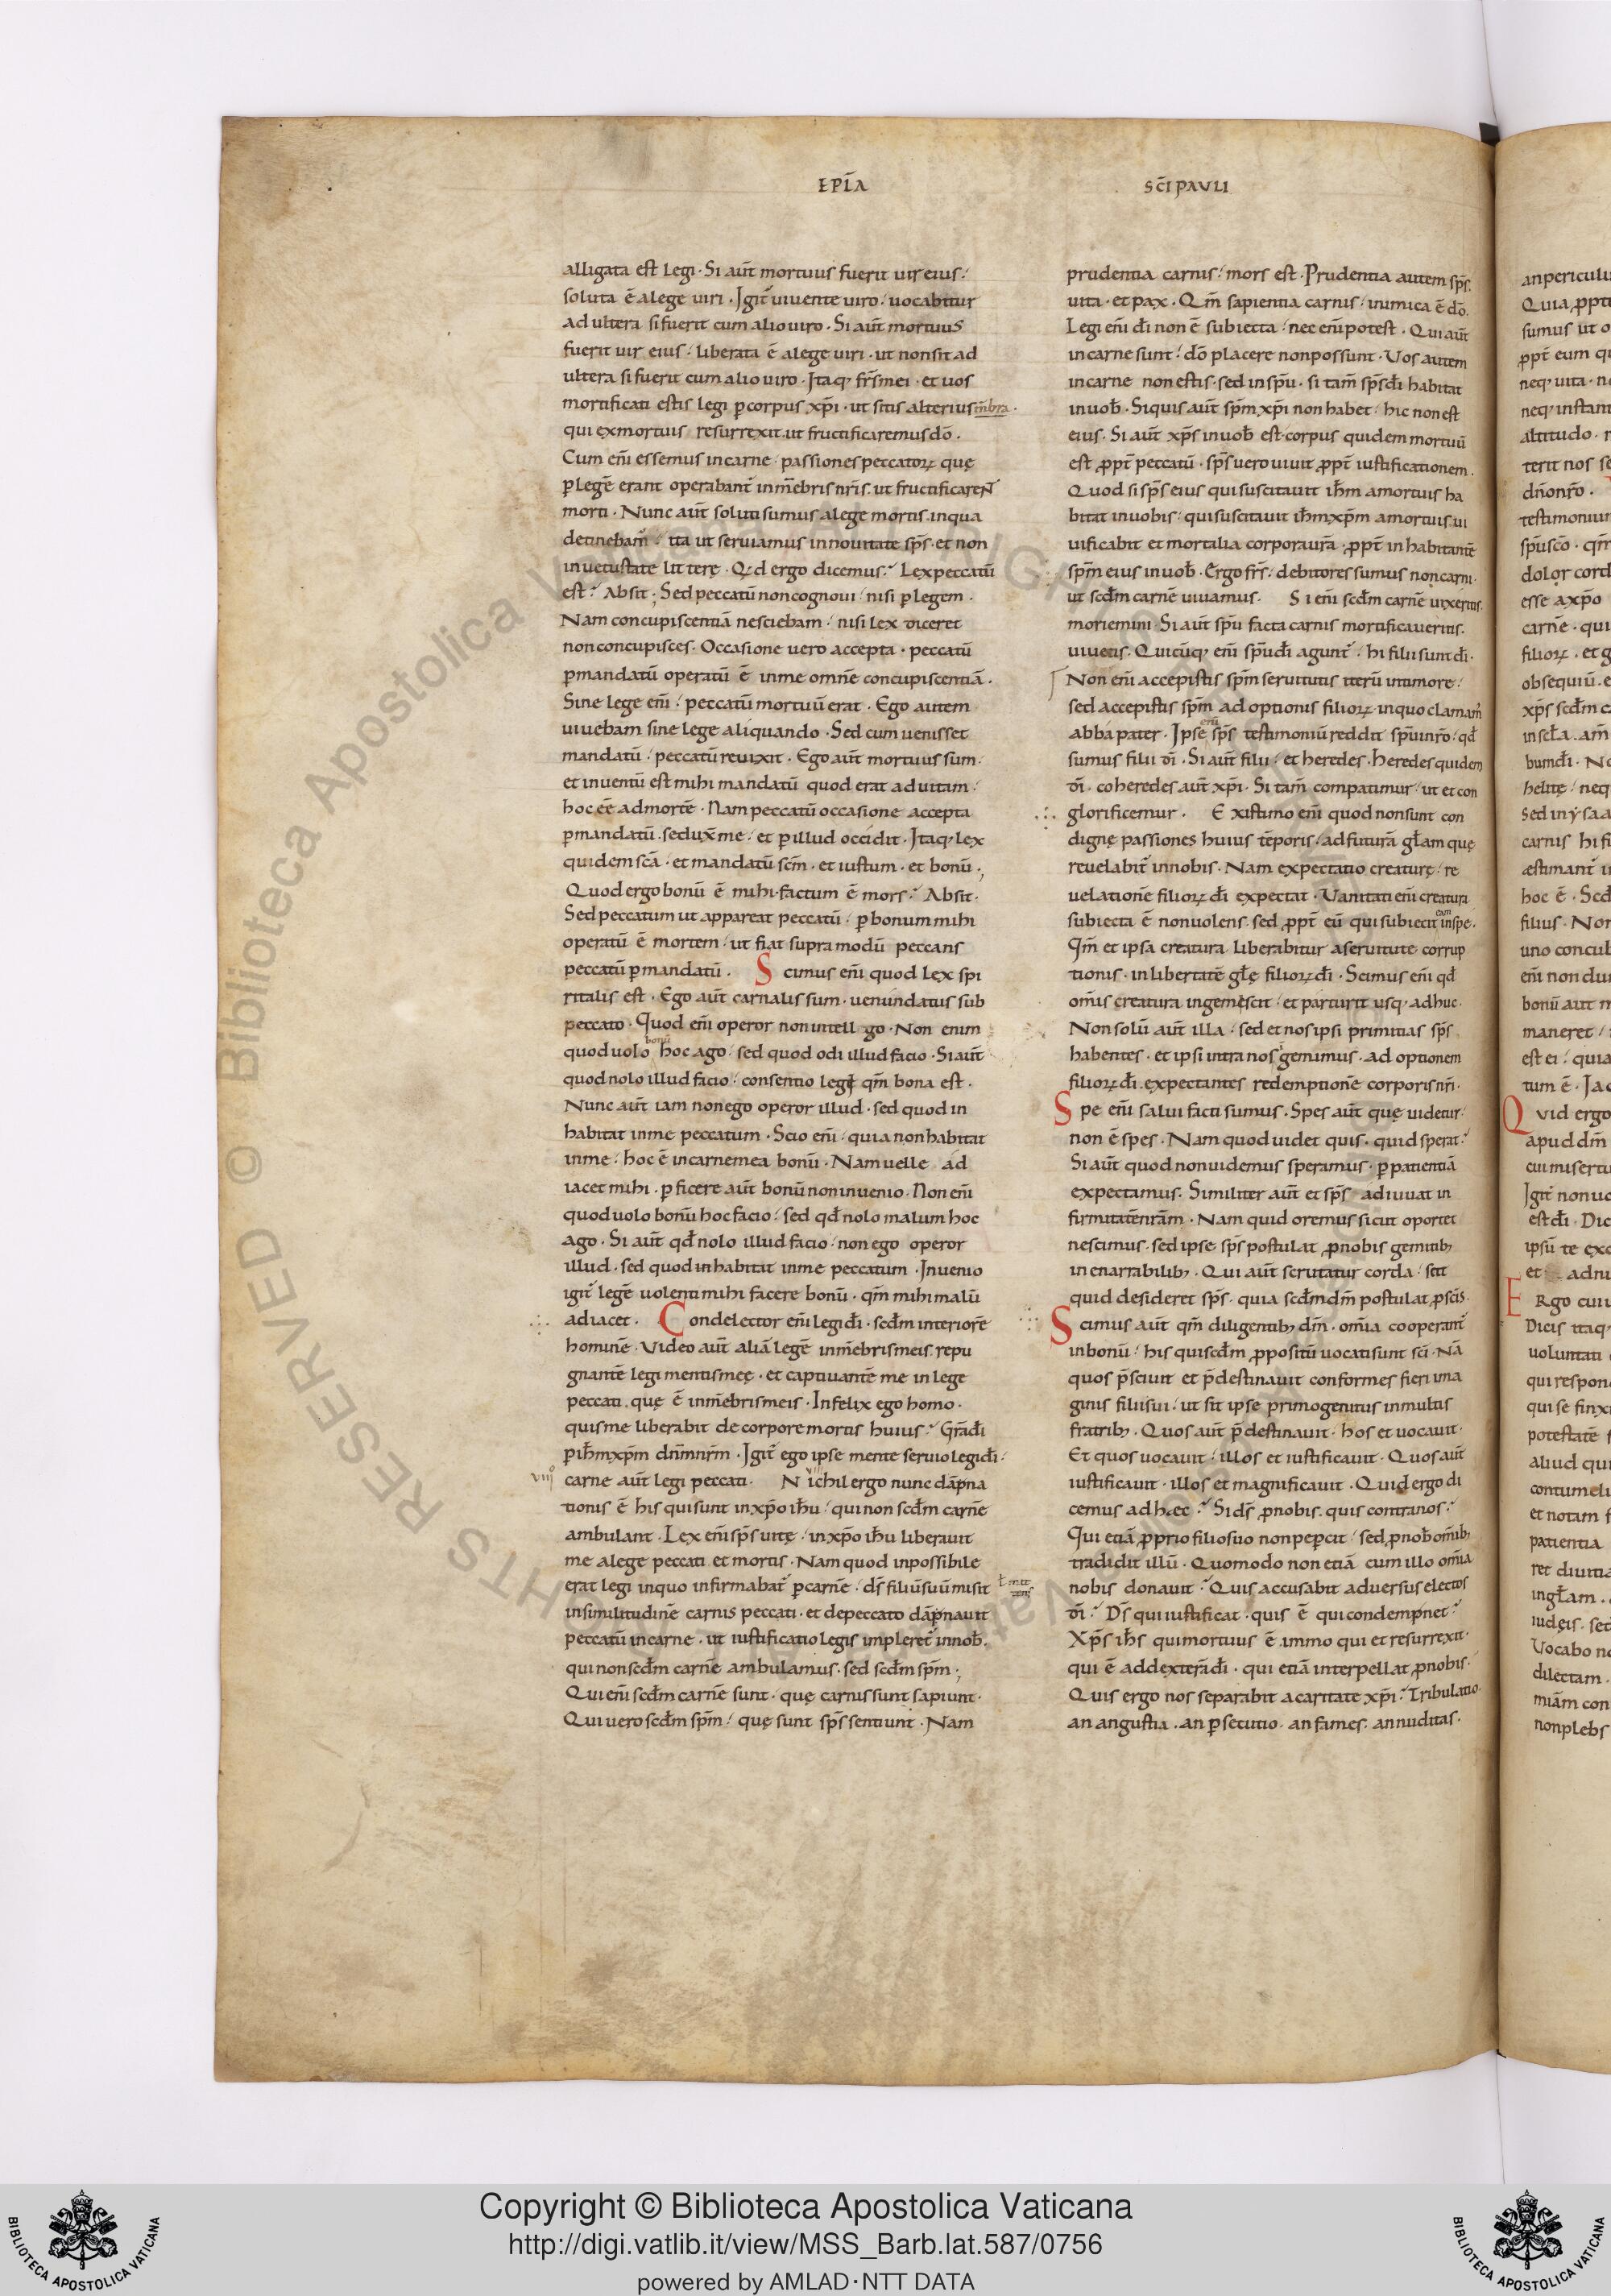 EPĪA
SC̄I PAVLI
alligata est legi · Si aut̄ mortuus fuerit uir eius :
soluta ē a lege uiri · Igit̄ uiuente uiro : uocabitur
adultera si fuerit cum alio uiro · Si aut̄ mortuus
fuerit uir eius : liberata ē a lege uiri · ut non sit ad
ultera si fuerit cum alio uiro · Itaq; fr̄s mei · et uos
mortificati estis legi ꝑ corpus xp̄i · ut sitis alterius m̄bra ·
qui ex mortuis resurrexit ut fructificaremus dō ·
Cum eni̅ essemus in carne · passiones peccatoꝝ quę
ꝑ legē erant operabant̄ in m̄ebris nr̄is ut fructificarent
morti · Nunc aut̄ soluti sumus a lege mortis in qua
detinebam̄ : ita ut seruiamus in nouitate sp̄s · et non
in uetustate litterę · Qd ergo dicemus ? Lex peccatū
est ? Absit ; Sed peccatū non cognoui : nisi ꝑ legem ·
Nam concupiscentiā nesciebam : nisi lex diceret
non concupisces · Occasione uero accepta · peccatū
ꝑ mandatū operatū ē in me omnē concupiscentiā ·
Sine lege eni̅ : peccatū mortuū erat · Ego autem
uiuebam sine lege aliquando · Sed cum uenisset
mandatū : peccatū reuixit · Ego aut̄ mortuus sum ·
et inuentū est mihi mandatū quod erat ad uitam :
hoc eē ad mortē · Nam peccatū occasione accepta
ꝑ mandatū · sedux̄ me : et ꝑ illud occidit · Itaq; lex
quidem sc̄a · et mandatū sc̄m · et iustum · et bonū ;
Quod ergo bonū ē mihi · factum ē mors ? Absit ·
Sed peccatum ut appareat peccatū : ꝑ bonum mihi
operatū ē mortem : ut fiat supra modū peccans
peccatū ꝑ mandatū · Scimus eni̅ quod lex spi
ritalis est · Ego aut̄ carnalis sum · uenundatus sub
peccato · Quod eni̅ operor non intell go · Non enim
bonū
quod uolo hoc ago : sed quod odi illud facio · Si aut̄
quod nolo illud facio : consentio legi qm̄ bona est ·
Nunc aut̄ iam non ego operor illud · sed quod in
habitat in me peccatum · Scio eni̅ : quia non habitat
in me : hoc ē in carne mea bonū · Nam uelle ad
iacet mihi · ꝑficere aut̄ bonū non inuenio · Non eni̅
quod uolo bonū hoc facio : sed qđ nolo malum hoc
ago · Si aut̄ qđ nolo illud facio : non ego operor
illud · sed quod inhabitat in me peccatum · Inuenio
igit̄ legē uolenti mihi facere bonū · qm̄ mihi malū
adiacet · Condelector eni̅ legi đi · scđm interiorē
hominē · Video aut̄ aliā legē in m̄ebris meis repu
gnantē legi mentis meę · et captiuantē me in lege
peccati · que ē in m̄ebris meis · Infelix ego homo ·
quis me liberabit de corpore mortis huius ? Gr̄a đi
ꝑ ih̄m xp̄m dn̄m nr̄m · Igit̄ ego ipse mente seruio legi đi :
viij
carne aut̄ legi peccati · Nichil ergo nunc dāpna
tionis ē his qui sunt in xp̄o ih̄u : qui non scđm carnē
ambulant · Lex eni̅ sp̄s uitę : in xp̄o ih̄u liberauit
me a lege peccati et mortis · Nam quod inpossibile
erat legi in quo infirmabat̄ ꝑ carnē : ds̄ filiū suū misit
in similitudinē carnis peccati · et de peccato dāpnauit
peccatū in carne · ut iustificatio legis impleret̄ in nob̄ ·
qui non scđm carnē ambulamus · sed scđm sp̄m ;
Qui eni̅ scđm carnē sunt · quę carnis sunt sapiunt ·
Qui uero scđm sp̄m : quę sunt sp̄s sentiunt · Nam
prudentia carnis : mors est · Prudentia autem sp̄s ·
uita · et pax · Qm̄ sapientia carnis : inimica ē dō ·
Legi eni̅ đi non ē subiecta : nec eni̅ potest · Qui aut̄
in carne sunt : dō placere non possunt · Uos autem
in carne non estis · sed in sp̄u · si tam̄ sp̄s đi habitat
in uob̄ · Si quis aut̄ sp̄m xp̄i non habet : hic non est
eius · Si aut̄ xp̄s in uob̄ est · corpus quidem mortuū
est ꝓpt̄ peccatū · sp̄s uero uiuit ꝓpt̄ iustificationem ·
Quod si sp̄s eius qui suscitauit ih̄m a mortuis ha
bitat in uobis : qui suscitauit ih̄m xp̄m a mortuis · ui
uificabit et mortalia corpora ur̄a · ꝓpt̄ inhabitantē
sp̄m eius in uob̄ · Ergo fr̄s : debitores sumus non carni ·
ut scđm carnē uiuamus · Si eni̅ scđm carnē uixeritis ·
moriemini · Si aut̄ sp̄u facta carnis mortificaueritis ·
uiuetis · Quicūq; eni̅ sp̄u đi agunt̄ : hi filii sunt đi ·
Non eni̅ accepistis sp̄m seruitutis iterū in timore :
sed accepistis sp̄m adoptionis filioꝝ · in quo clamam̄
eni̅
abba pater · Ipse sp̄s testimoniū reddit sp̄ui nr̄o : qđ
sumus filii đi · Si aut̄ filii : et heredes · Heredes quidem
đi · coheredes aut̄ xp̄i · Si tam̄ compatimur : ut et con
glorificemur · Existimo eni̅ quod non sunt con
dignę passiones huius tēporis · ad futurā gl̄am quę
reuelabit̄ in nobis · Nam expectatio creaturę : re
uelationē filioꝝ đi expectat · Vanitati eni̅ creatura
eam
subiecta ē non uolens · sed ꝓpt̄ eū qui subiecit in spe ·
Qm̄ et ipsa creatura liberabitur a seruitute corrup
tionis · in libertatē gl̄ę filioꝝ đi · Scimus eni̅ qđ
om̄is creatura ingemescit : et parturit usq; adhuc ·
Non solū aut̄ illa : sed et nos ipsi primitias sp̄s
habentes · et ipsi intra nos gemimus · adoptionem
filioꝝ đi expectantes redemptionē corporis nr̄i ·
Spe eni̅ salui facti sumus · Spes aut̄ quę uidetur :
non ē spes · Nam quod uidet quis · quid sperat ?
Si aut̄ quod non uidemus speramus · ꝑ patientiā
expectamus · Similiter aut̄ et sp̄s adiuuat in
firmitatē nr̄am · Nam quid oremus sicut oportet
nescimus · sed ipse sp̄s postulat ꝓ nobis gemitib;
inenarrabilib; · Qui aut̄ scrutatur corda : scit
quid desideret sp̄s · quia scđm dm̄ postulat ꝓ sc̄is ·
Scimus aut̄ qm̄ diligentib; dm̄ · om̄ia cooperant̄
in bonū : his qui scđm ꝓpositū uocati sunt sc̄i · Nā
quos p̄sciuit et p̄destinauit conformes fieri ima
ginis filii sui : ut sit ipse primogenitus in multis
fratrib; · Quos aut̄ p̄destinauit · hos et uocauit ·
Et quos uocauit : illos et iustificauit · Quos aut̄
iustificauit · illos et magnificauit · Quid ergo di
cemus ad hæc ? Si ds̄ ꝓ nobis · quis contra nos ?
Qui etiā ꝓprio filio suo non peꝑcit : sed ꝓ nob̄ om̄ib;
tradidit illū · Quomodo non etiā cum illo om̄ia
nobis donauit ? Quis accusabit aduersus electos
đi ? Ds̄ qui iustificat · quis ē qui condempnet ?
Xp̄s ih̄s qui mortuus ē immo qui et resurrexit ·
qui ē ad dexterā đi · qui etiā interpellat ꝓ nobis ·
Quis ergo nos separabit a caritate xp̄i ? Tribulatio
an angustia · an ꝑsecutio · an fames · an nuditas ·
an periculu
Quia ꝓpt
sumus ut o
ꝓpt̄ eum q
neq; uita · n
neq; instan
altitudo · n
terit nos se
dn̄o nr̄o ·
testimonium
sp̄u sc̄o · qm̄
dolor cord
esse a xp̄o
carnē · qui
filioꝝ · et g
obsequiū · e
xp̄s scđm c
in scl̄a · am̄
bum đi · No
helitę : neq
Sed in ysaa
carnis hi fi
æstimant̄ i
hoc ē · Sed
filius · Non
uno concub
eni̅ non du
bonū aut m
maneret :
est ei : quia
tum ē · Iac
Quid ergo
apud dm̄
cui misertu
Igit̄ non uo
est đi · Dic
ipsū te exc
et adnu
Ergo cuiu
Dicis itaq;
uoluntati
qui respon
qui se finxi
potestatē
aliud qui
contumeli
et notam f
patientia
ret diuitia
in gl̄am ·
iudęis · sed
Vocabo no
dilectam ·
miām con
non plebs
Copyright © Biblioteca Apostolica Vaticana
http://digi.vatlib.it/view/MSS_Barb.lat.587/0756
powered by AMLAD·NTT DATA
BIBLIOTECA APOSTOLICA VATICANA
BIBLIOTECA APOSTOLICA VATICANA